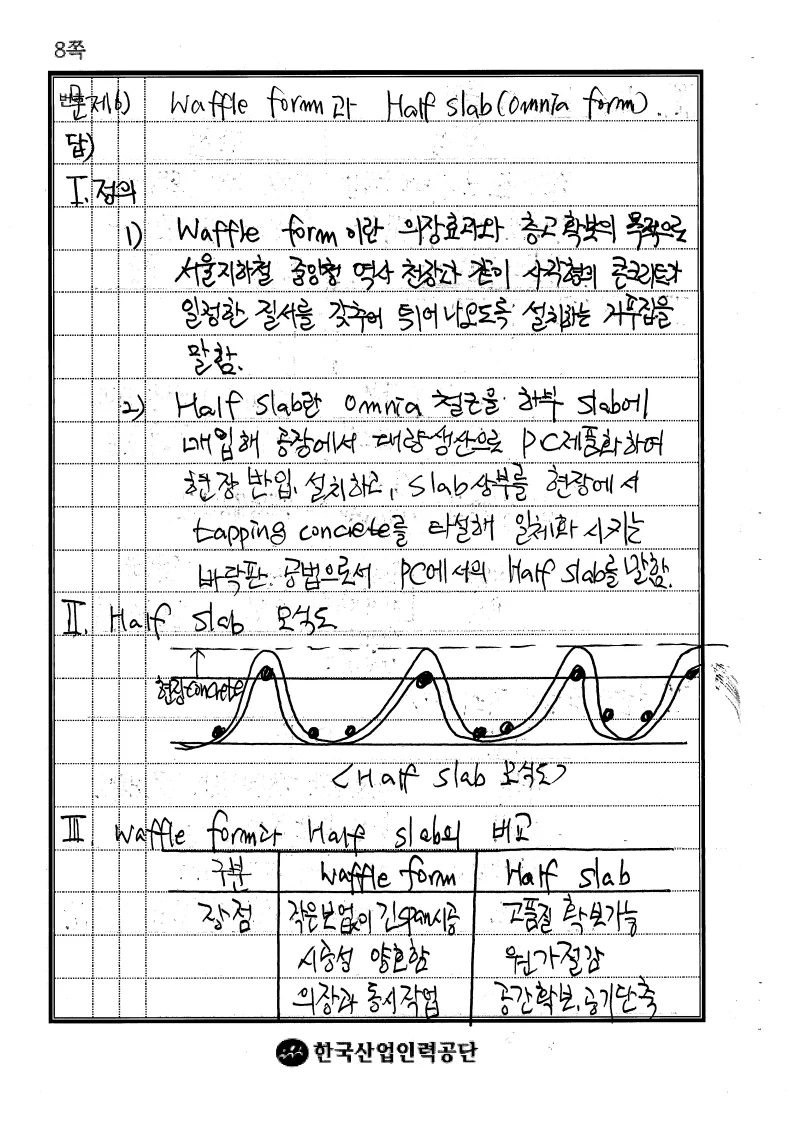 8쪽
번호
문제6) Waffle form과 Half slab(omnia form).
답)
I. 정의
1) Waffle form이란 의장효과와 층고 확보의 목적으로
서울지하철 중앙청 역사 천장과 같이 사각형의 콘크리트가
일정한 질서를 갖추어 튀어나오도록 설치하는 거푸집을
말함.
2) Half slab란 omnia 철근을 하부 slab에
매입해 공장에서 대량생산으로 PC제품화하여
현장 반입, 설치하고, slab상부를 현장에서
tapping concrete를 타설해 일체화 시키는
바닥판 공법으로서 PC에서의 Half slab를 말함.
II. Half slab 모식도
현장concrete
<Half slab 모식도>
III Waffle form과 Half slab의 비교
구분 Waffle form Half slab
장점 작은보없이 긴span시공 고품질 확보가능
시공성 양호함 원가절감
의장과 동시작업 공간확보, 공기단축
한국산업인력공단